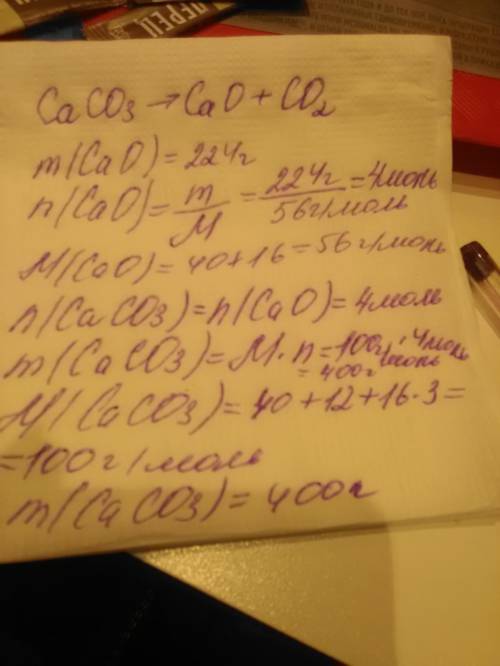 ПЕРЕЦ
CaCO3 → CaO + CO2
m(CaO) = 224г
n(CaO) = m/M = 224г/56г/моль = 4моль
M(CaO) = 40+16 = 56г/моль
n(CaCO3) = n(CaO) = 4моль
m(CaCO3) = M·n = 100г/моль·4моль
= 400г
M(CaCO3) = 40+12+16·3 =
= 100г/моль
m(CaCO3) = 400г